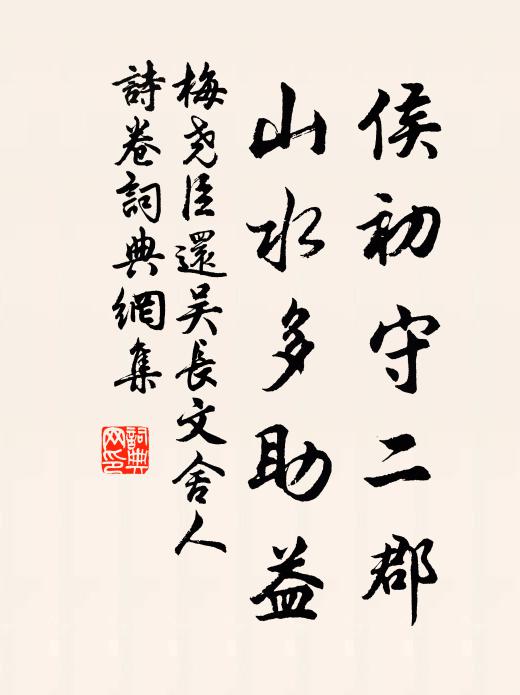 侯初守二郡
山水多助益
梅尧臣還吴長文舍人
詩卷詞典網集
詞典
网印